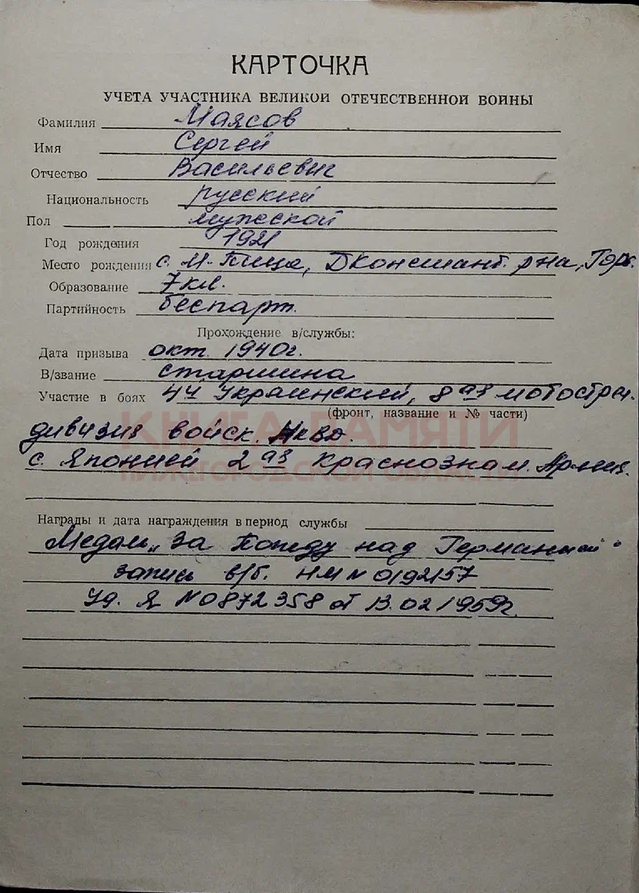 КАРТОЧКА
УЧЕТА УЧАСТНИКА ВЕЛИКОЙ ОТЕЧЕСТВЕННОЙ ВОЙНЫ
Фамилия Маясов
Имя Сергей
Отчество Васильевич
Национальность русский
Пол мужской
Год рождения 1921
Место рождения с. М-Пица, Дконстант. р-на, Горьк.
Образование 7 кл.
Партийность беспарт.
Прохождение в/службы:
Дата призыва окт. 1940г.
В/звание старшина
Участие в боях 4й Украинский, 8ая мотострел.
(фронт, название и № части)
дивизия войск НКВД.
КНИГА ПАМЯТИ
с Японией 2ая Краснознам. Армия.
НИЖЕГОРОДСКОЙ ОБЛАСТИ
Награды и дата награждения в период службы
Медаль „За Победу над Германией"
запись в/б. НМ № 0192157
Уд. Я № 0872358 от 13.02.1959г.